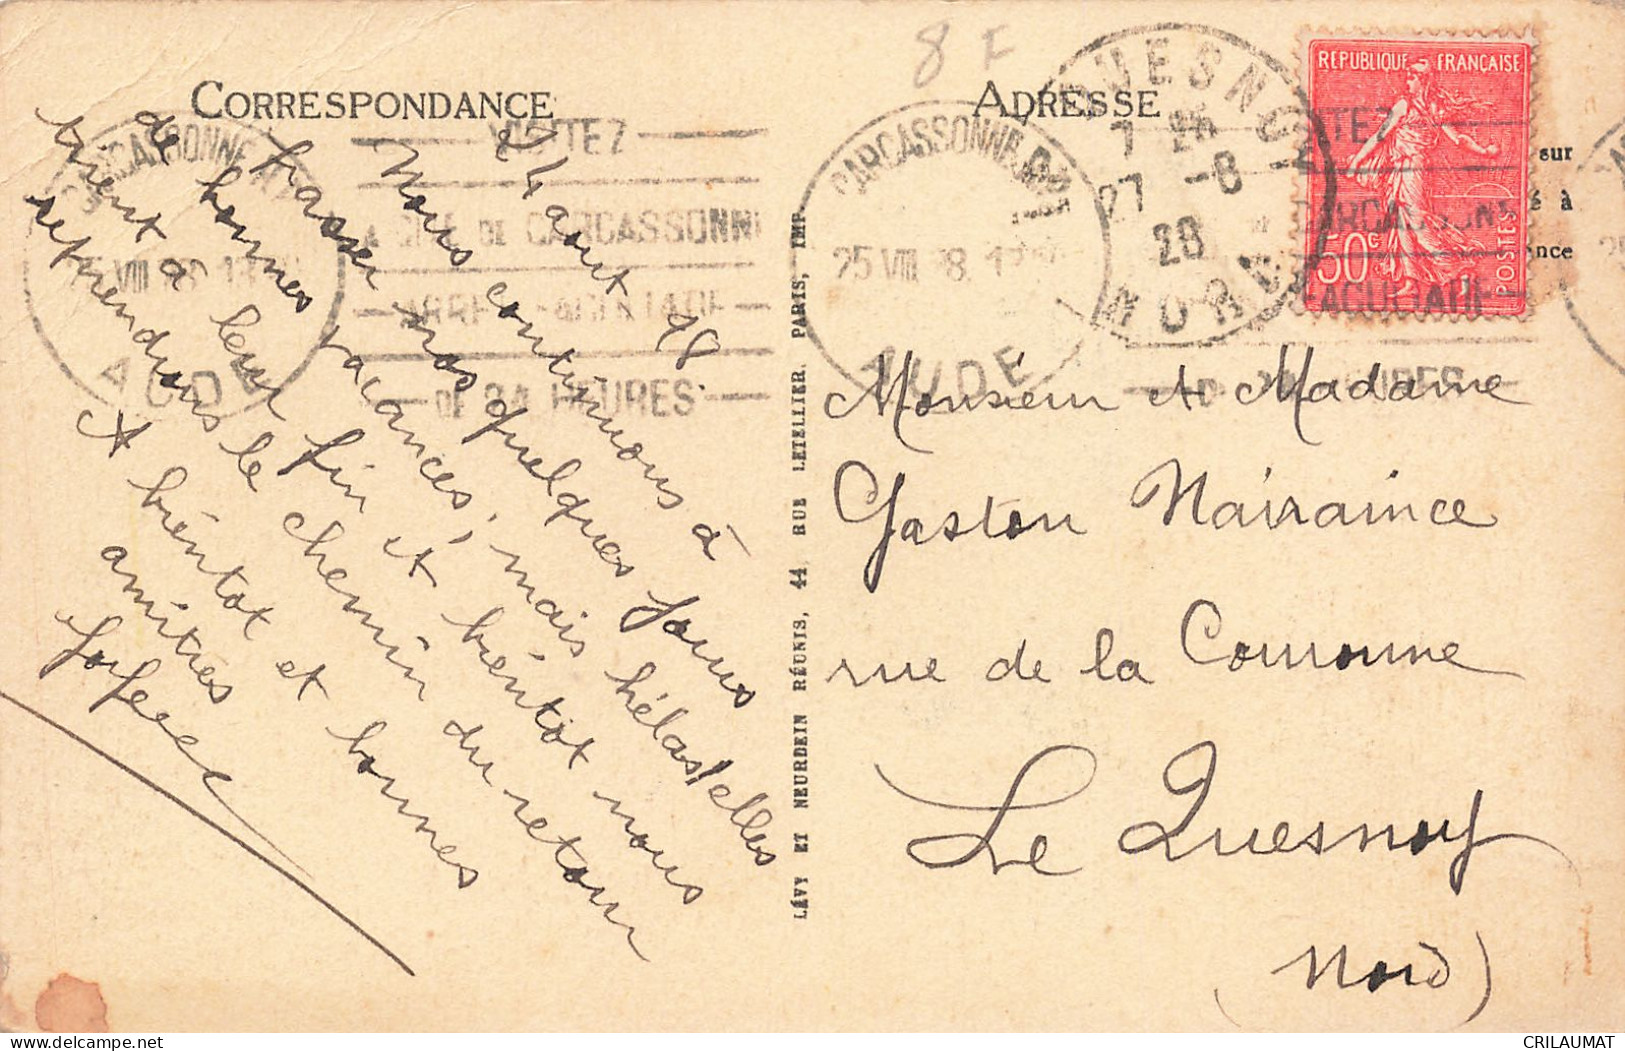 CORRESPONDANCE
24 août 28.
Nous continuons à
passer nos quelques jours
de bonnes vacances, mais hélas! elles
tirent à leur fin et bientôt nous
reprendrons le chemin du retour
A bientôt et bonnes
amitiés
CARCASSONNE
25 VIII 28
AUDE
VISITEZ
LA CITÉ DE CARCASSONNE
ARRÊT FACULTATIF
DE 24 HEURES
LÉVY ET NEURDEIN RÉUNIS, 44, RUE LETELLIER, PARIS, IMP.
8 F
ADRESSE
QUESNOY
27 -8
28
NORD
CARCASSONNE
25 VIII 28
AUDE
REPUBLIQUE FRANÇAISE
50c
POSTES
sur
é à
nce
Monsieur et Madame
Gaston
rue de la Couronne
Le Quesnoy
Nord)
CRILAUMAT